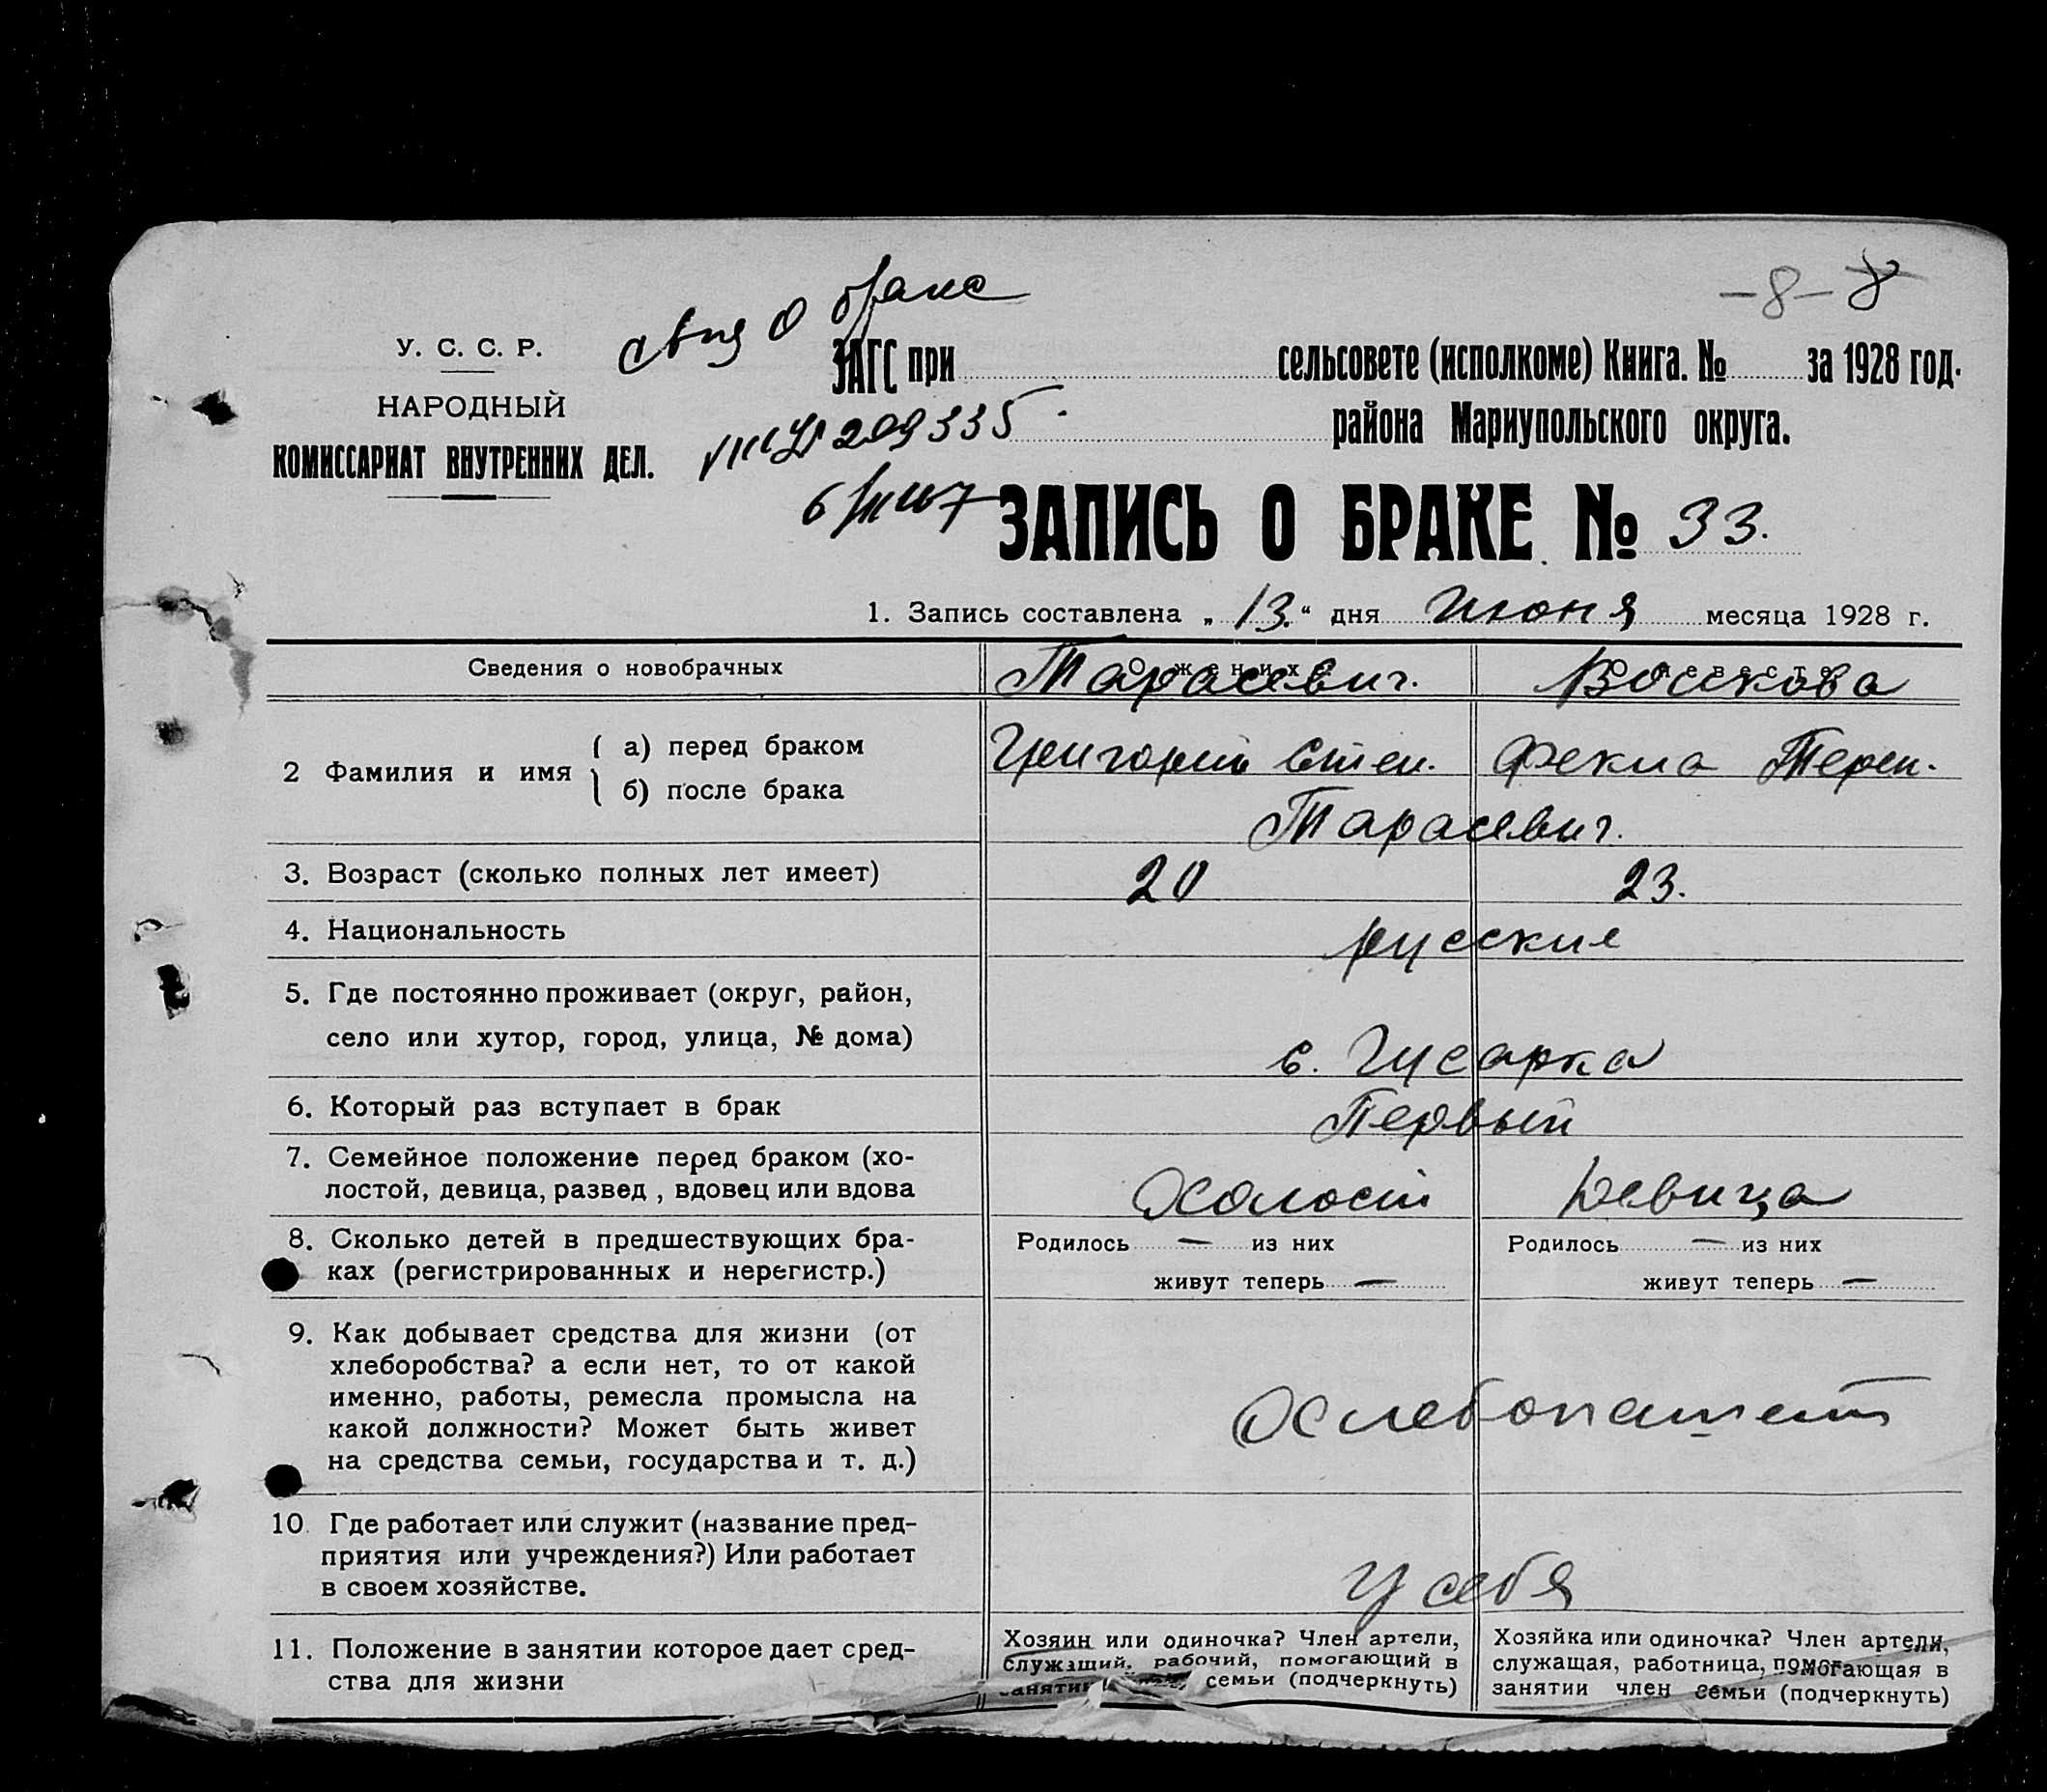 -8- 8
свид о браке
У. С. С. Р.
ЗАГС при сельсовете (исполкоме) Книга. № за 1928 год.
НАРОДНЫЙ
КОМИССАРИАТ ВНУТРЕННИХ ДЕЛ.
209335
района Мариупольского округа.
ЗАПИСЬ О БРАКЕ № 33.
1. Запись составлена „13.“ дня июня месяца 1928 г.
Сведения о новобрачных
О женихе
О невесте
Тарасевич.
2 Фамилия и имя
а) перед браком
б) после брака
Григорий Степ.
Фекла Терен.
Тарасевич.
3. Возраст (сколько полных лет имеет)
20
23.
4. Национальность
русские
5. Где постоянно проживает (округ, район,
село или хутор, город, улица, № дома)
с. Гусарка
6. Который раз вступает в брак
Первый
7. Семейное положение перед браком (хо-
лостой, девица, развед , вдовец или вдова
Холост
Девица
8. Сколько детей в предшествующих бра-
ках (регистрированных и нерегистр.)
Родилось — из них
живут теперь —
Родилось — из них
живут теперь —
9. Как добывает средства для жизни (от
хлеборобства? а если нет, то от какой
именно, работы, ремесла промысла на
какой должности? Может быть живет
на средства семьи, государства и т. д.)
Хлебопашест
10 Где работает или служит (название пред-
приятия или учреждения?) Или работает
в своем хозяйстве.
у себя
11. Положение в занятии которое дает сред-
ства для жизни
Хозяин или одиночка? Член артели,
служащий, рабочий, помогающий в
занятии семьи (подчеркнуть)
Хозяйка или одиночка? Член артели,
служащая, работница, помогающая в
занятии член семьи (подчеркнуть)